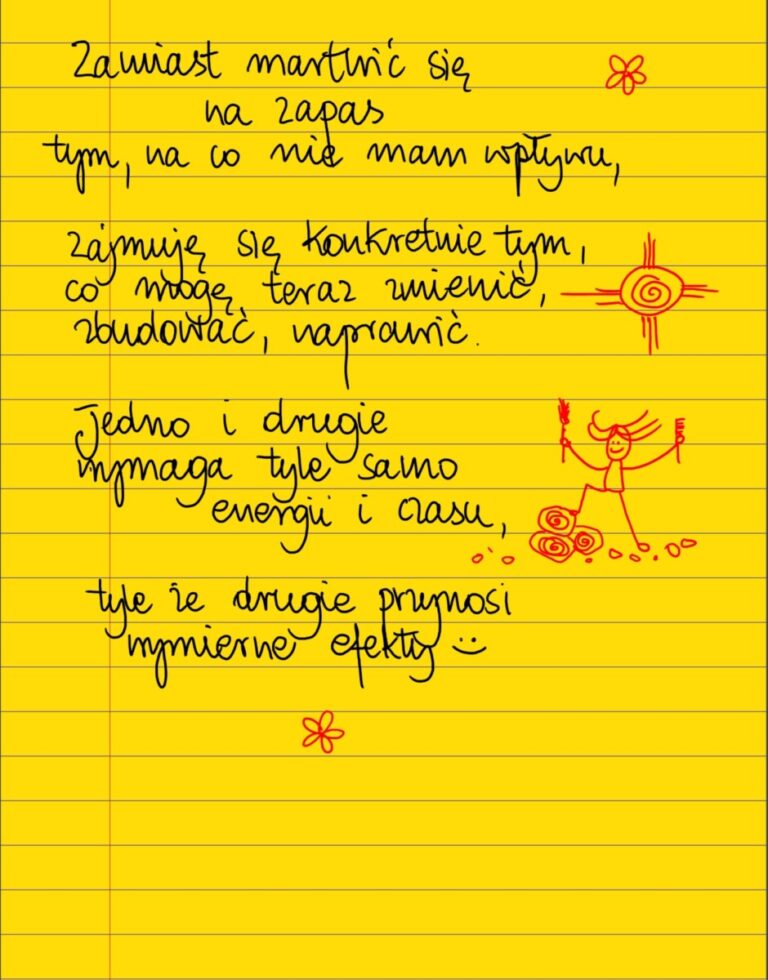 Zamiast martwić się
na zapas
tym, na co nie mam wpływu,
zajmuję się konkretnie tym,
co mogę teraz zmienić,
zbudować, naprawić.
Jedno i drugie
wymaga tyle samo
energii i czasu,
tyle że drugie przynosi
wymierne efekty :)